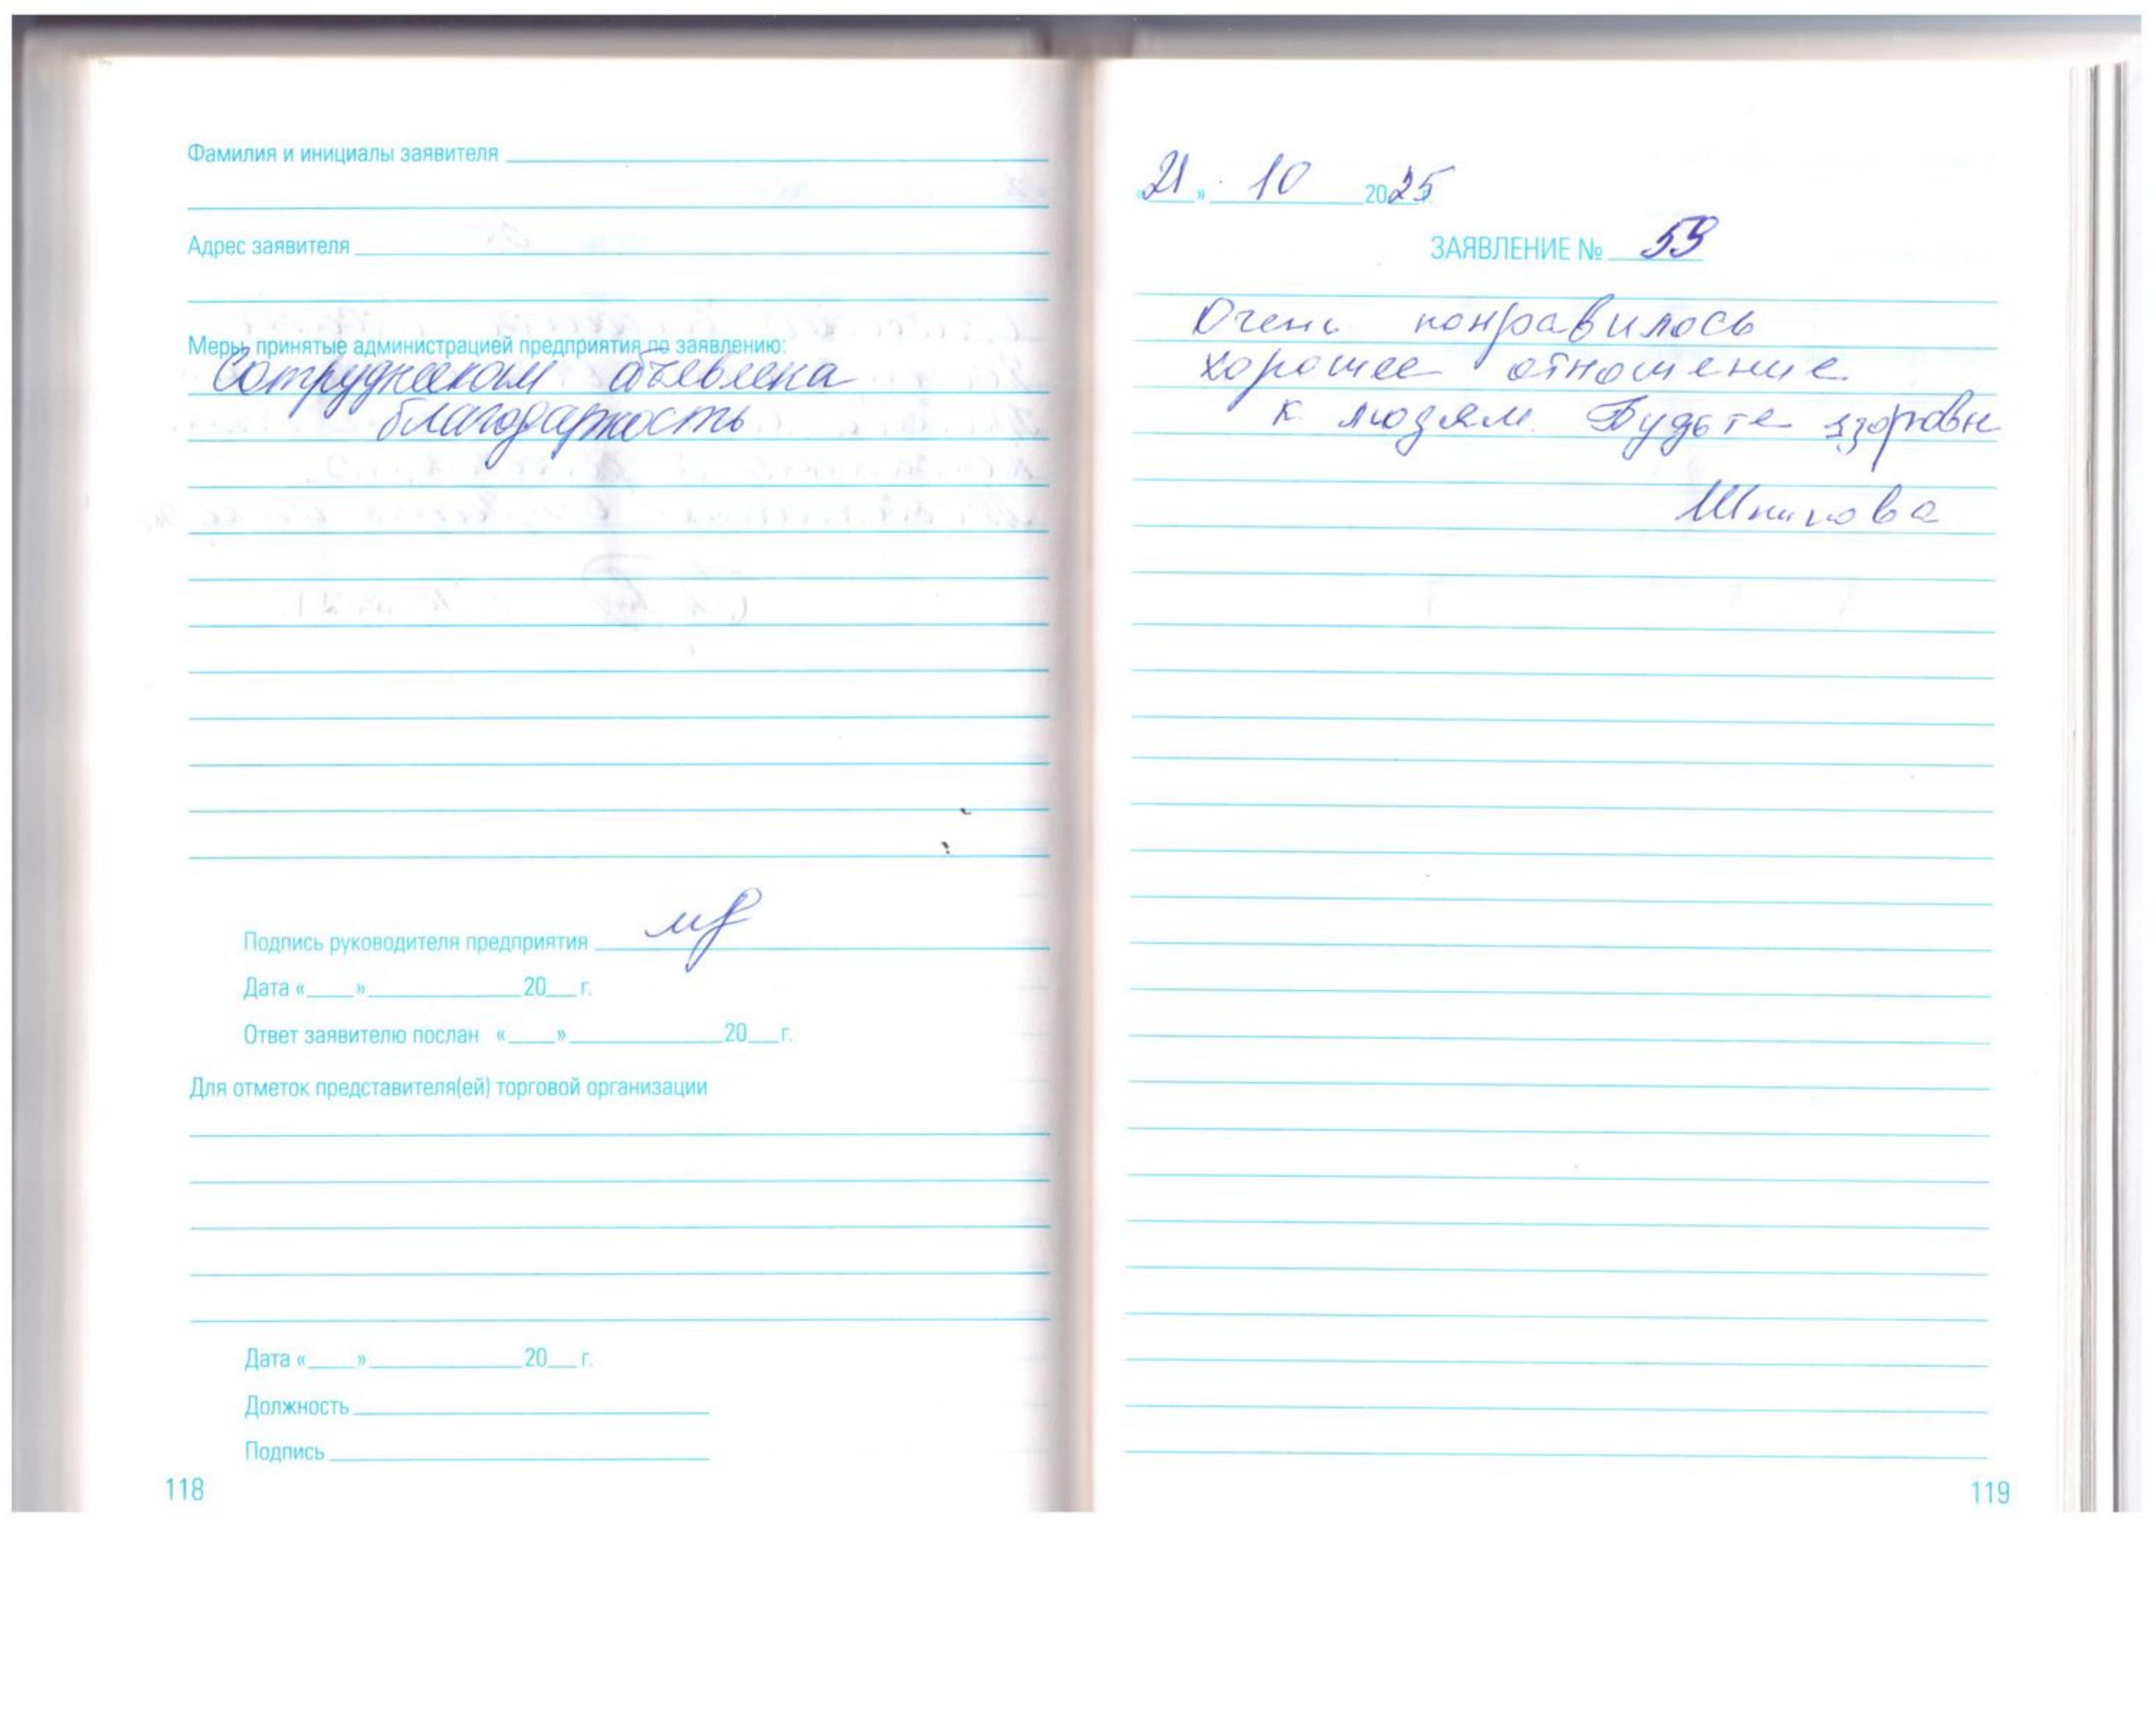 Фамилия и инициалы заявителя
Адрес заявителя
Меры, принятые администрацией предприятия по заявлению:
Сотрудникам объявлена
благодарность
Подпись руководителя предприятия
Дата «____»____________20___г.
Ответ заявителю послан «____»____________20___г.
Для отметок представителя(ей) торговой организации
Дата «____»____________20___г.
Должность
Подпись
118
«21» 10 2025
ЗАЯВЛЕНИЕ № 59
Очень понравилось
хорошее отношение
к людям. Будьте здоровы
119